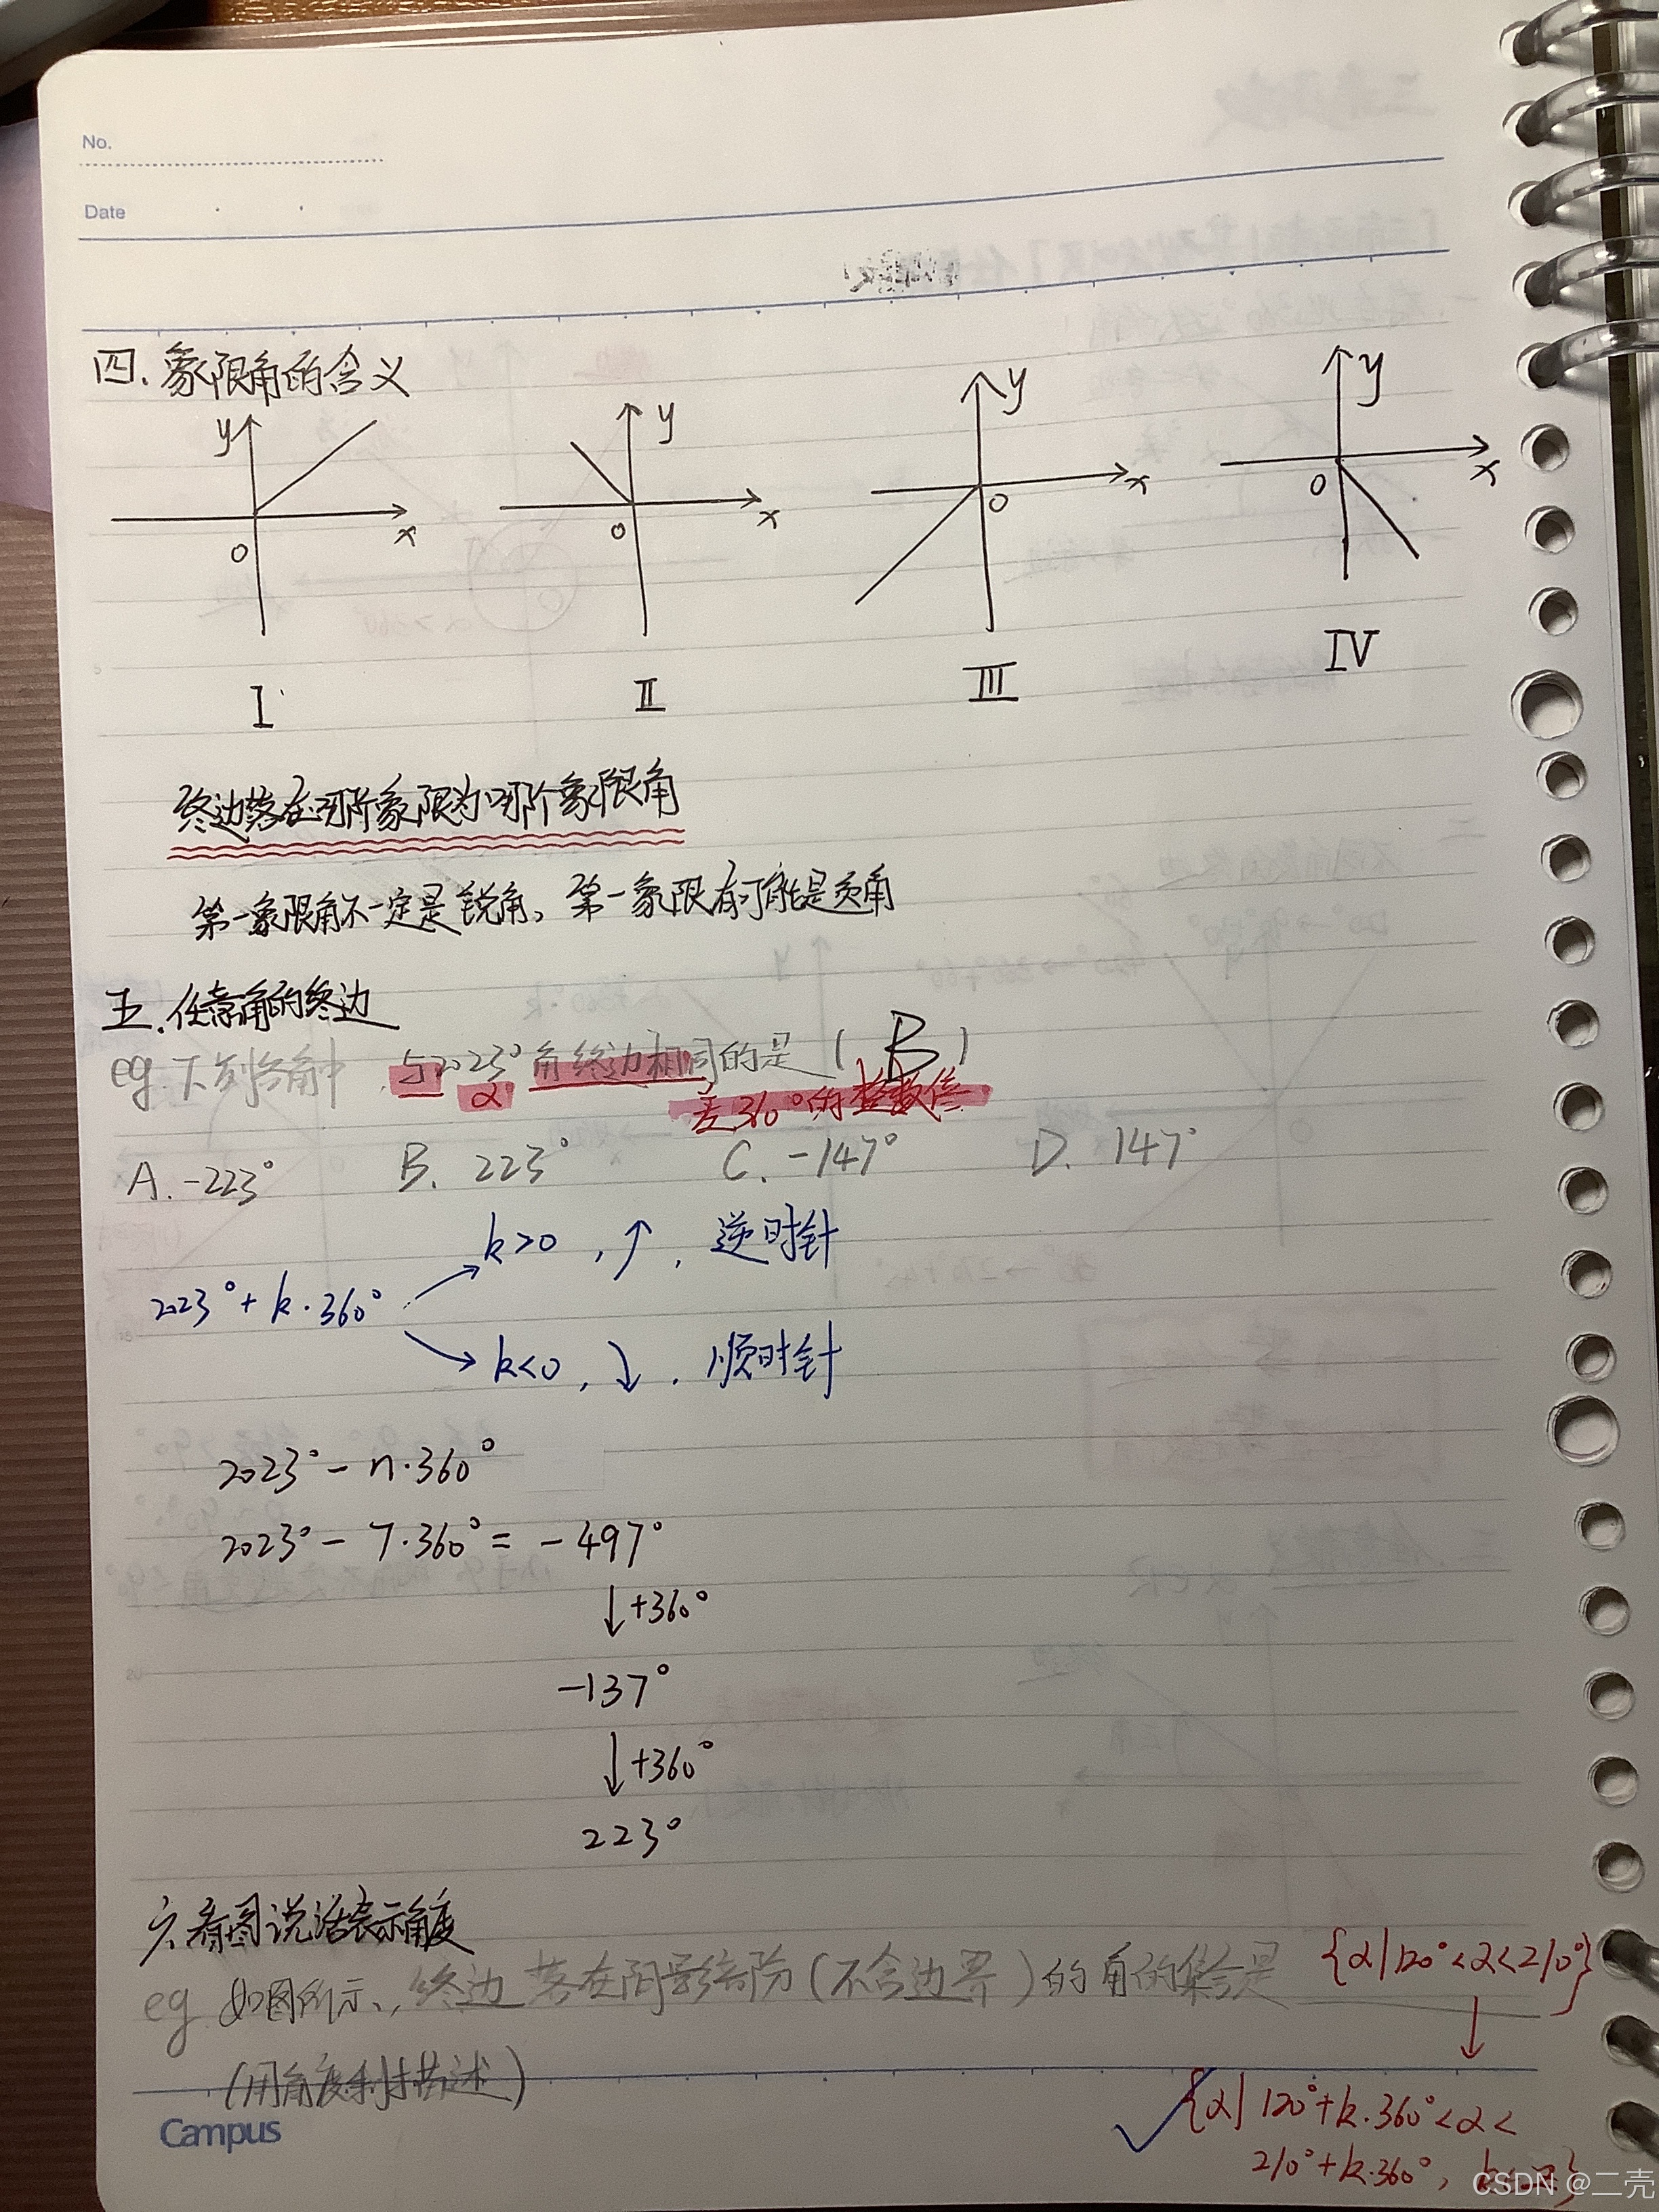 No.
Date
四.象限角的含义
y x O
y x O
y x O
y x O
I
II
III
IV
终边落在哪个象限为哪个象限角
第一象限角不一定是锐角,第一象限有可能是负角
五.任意角的终边
eg.下列各角中 与2023°角终边相同的是( B )
α 差360°的整数倍
A.-223° B. 223° C. -147° D. 147°
k>0,↑,逆时针
2023°+k·360°
k<0,↓,顺时针
2023°-n·360°
2023°-7·360°=-497°
↓+360°
-137°
↓+360°
223°
六.看图说话表示角度
eg 如图所示,终边落在阴影部分(不含边界)的角的集合是 {α|120°<α<210°}
(用角度制描述)
{α|120°+k·360°<α<
210°+k·360°,
Campus
CSDN @二壳